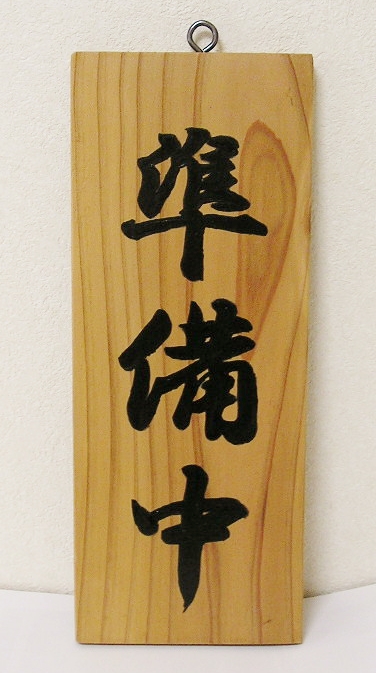 準備中